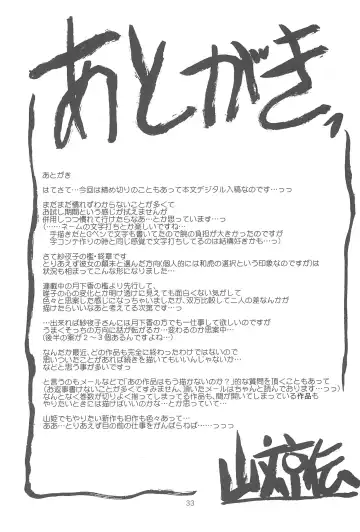 あとがき、
あとがき
はてさて…今回は締め切りのこともあって本文デジタル入稿なのです…っっ
まだまだ慣れずわからないことが多くて
お試し期間という感じが拭えませんが
併用しつつ慣れて行けたらなあ…とか思っています…っ
(……ネームの文字打ちとか楽しいですね
手描きだとGペンで文字も書いてたので腕の負担が大きかったのですが
字コンテ作りの時と同じ感覚で文字打ちしてるのは結構好きかも…っ)
さて紗夜子の檻・終章です
とりあえず彼女の顛末と選んだ方向(個人的には和虎の選択という印象なのですが)は
状況も相まってこんな形になりました…
連載中の月下香の檻より先行して、
瑤子の心の変化とか明け透けに見えても面白くない気がして
色々と思案した感じになっちゃいましたが、双方比較して二人の差なんかが
描けたらいいなあと考えてる次第です…っ
…出来れば紗夜子さんには月下香の方でも一仕事して欲しいのですが
うまくそっちの方向に話が転がるか…変わるのか思案中…
(後半の案が２～３個あるんですよね…)
なんだか最近、どの作品も完全に終わったわけではないので
思いついたことがあれば続きを描いてもいいんじゃないか…
などと思う事が多いですっ
と言うのもメールなどで「あの作品はもう描かないのか?」的な質問を頂くこともあって
(お返事書けないことが多くてすみません、頂いたメールはちゃんと読んでおります…っっ)
なんとなく巻数が切りよく揃ってしまってる作品も、間が開いてしまっている作品も
やりたいときには描けばいいのかな…とか思っていて…
山姫でもやりたい新作も旧作も色々あって…
ああ…とりあえず目の前の仕事をがんばらねば……っっっ
33